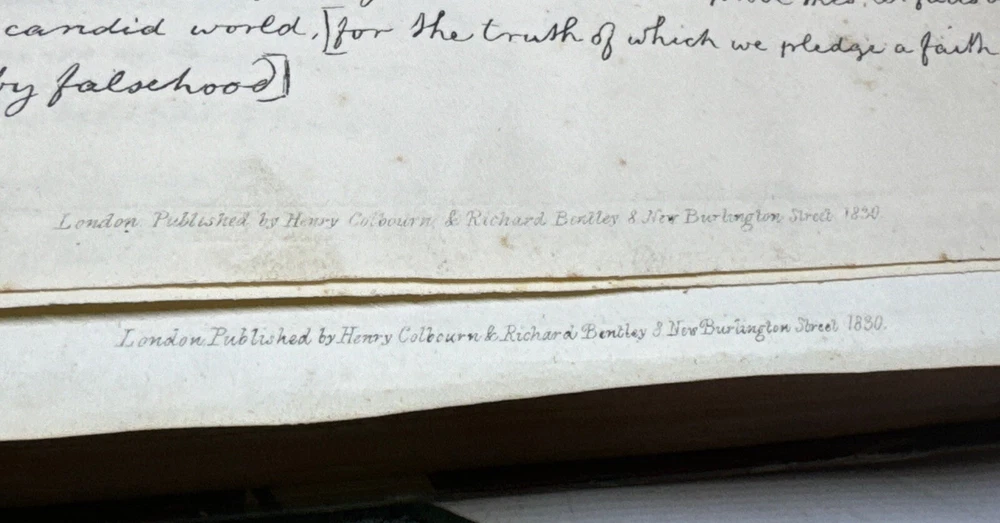 candid world, [for the truth of which we pledge a faith
by falsehood]
London Published by Henry Colbourn, & Richard Bentley 8 New Burlington Street 1830.
London Published by Henry Colbourn & Richard Bentley 8 New Burlington Street 1830.